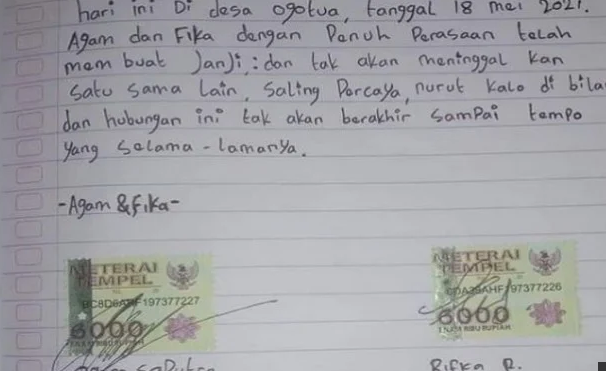 hari ini Di desa ogotua, tanggal 18 mei 2021.
Agam dan Fika dengan Penuh Perasaan telah
mem buat Janji, : dan tak akan meninggal kan
Satu sama Lain, Saling Percaya, nurut kalo di bila
dan hubungan ini tak akan berakhir Sampai tempo
yang Selama - lamanya.
-Agam & Fika-
METERAI
TEMPEL
197377227
6000
ENAM RIBU RUPIAH
METERAI
TEMPEL
AHF197377226
6000
ENAM RIBU RUPIAH
Rifka R.